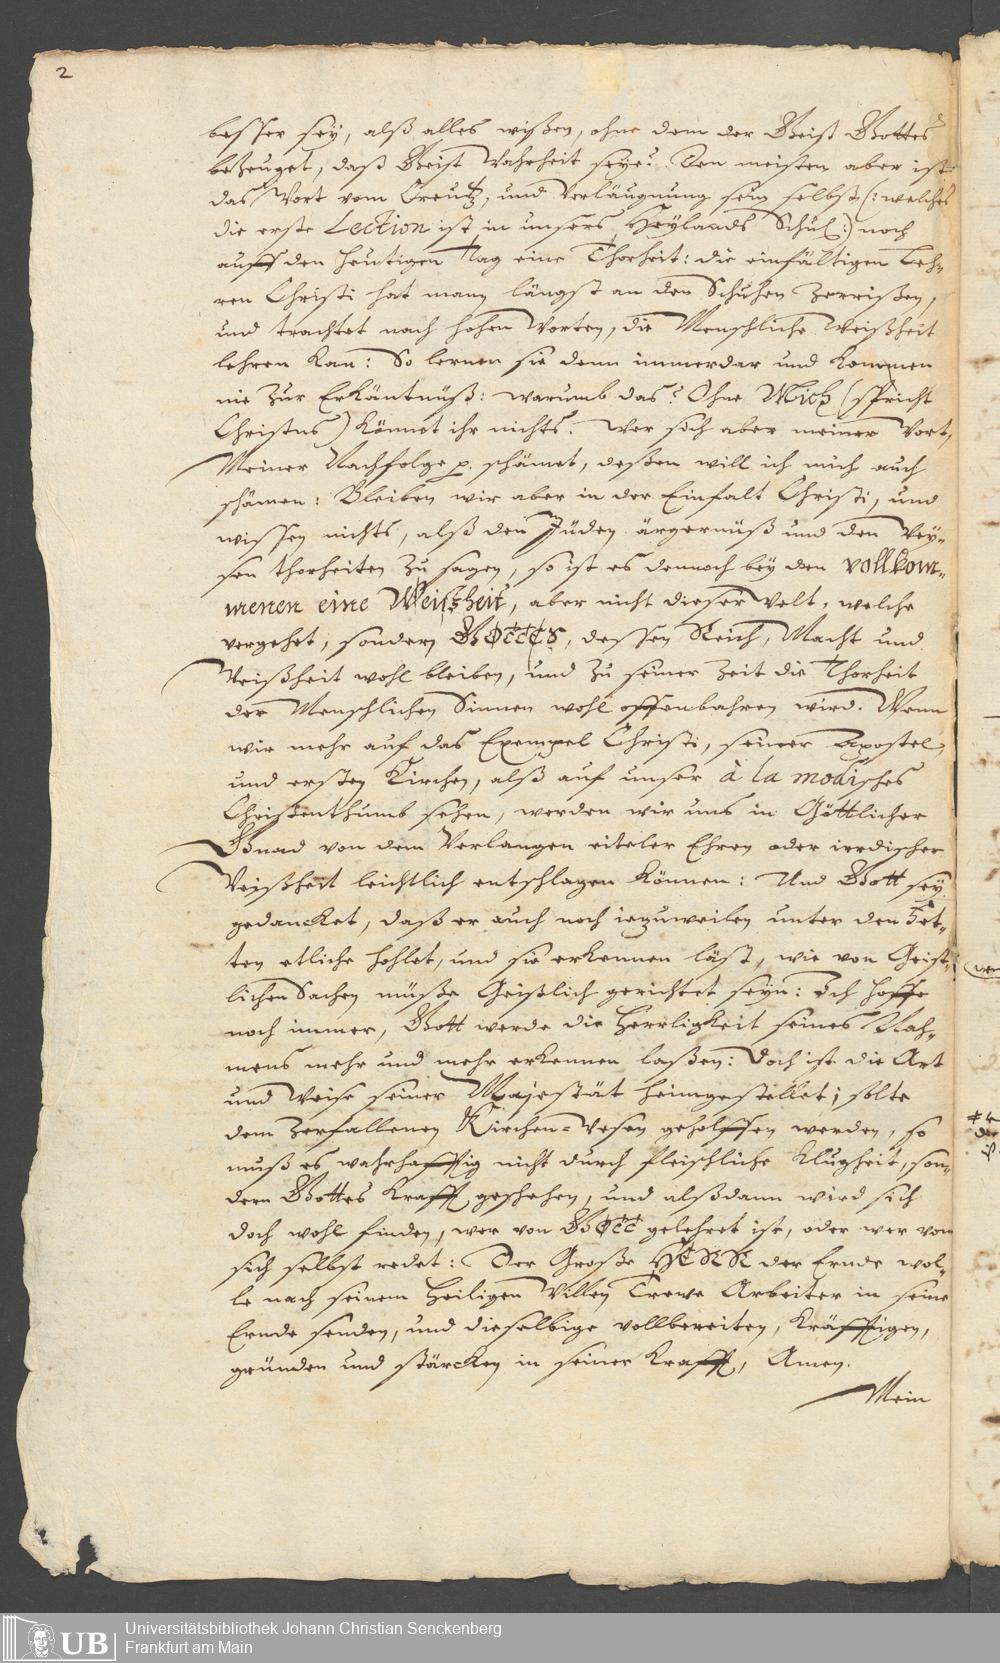 2
besser sey, alß alles wißen, ohne dem der Geist Gottes
bezeuget, daß Geist Wahrheit seye? Den meisten aber ist
das Wort vom Creutz, und Verläugnung sein selbst (: welches
die erste Lection ist in unsers Heylands Schul :) noch
auff den heutigen Tag eine Thorheit: die einfältigen Leh-
ren Christi hat man längst an den Schuhen zerrißen,
und trachtet nach hohen Worten, die Menschliche Weißheit
lehren kan: So lernen sie denn immerdar und kommen
nie zur Erkäntnüß: warumb das? Ohne Mich (spricht
Christus) könnet ihr nichts. Wer sich aber meiner Wort,
Meiner Nachfolge p. schämet, deßen will ich mich auch
schämen: Bleiben wir aber in der Einfalt Christi, und
wissen nichts, alß den Jüden ärgernüß und den Wey-
sen thorheiten zu sagen, so ist es dennoch bey den vollkom-
menen eine Weißheit, aber nicht dieser Welt, welche
vergehet, sondern GOttes, dessen Reich, Macht und
Weißheit wohl bleiben, und zu seiner Zeit die Thorheit
der Menschlichen Sinnen wohl offenbahren wird. Wenn
wir mehr auf das Exempel Christi, seiner Apostel,
und ersten Kirchen, alß auf unser à la modisches
Christenthumb sehen, werden wir uns in Göttlicher
Gnad von dem Verlangen eiteler Ehren oder irrdischer
Weißheit leichtlich entschlagen können: Und Gott sey
gedancket, daß er auch noch iezuweilen unter den
ten etliche hohlet, und sie erkennen läst, wie von Geist-
lichen Sachen müße Geistlich gerichtet seyn: Ich hoffe
noch immer, Gott werde die Herrligkeit seines Nah-
mens mehr und mehr erkennen laßen: Doch ist die Art
und Weise seiner Majestät heimgestellet; solte
dem zerfallenen Kirchen-Wesen geholffen werden, so
muß es wahrhafftig nicht durch fleischliche Klugheit, son-
dern Gottes Krafft geschehen, und alßdann wird sich
doch wohl finden, wer von GOtt gelehret ist, oder wer von
sich selbst redet: Der Große HERR der Ernde wol-
le nach seinem Heiligen Willen Trewe Arbeiter in seine
Ernde senden, und dieselbige vollbereiten, kräfftigen,
gründen und stärcken in seiner Krafft, Amen.
Mein
UB
Universitätsbibliothek Johann Christian Senckenberg
Frankfurt am Main